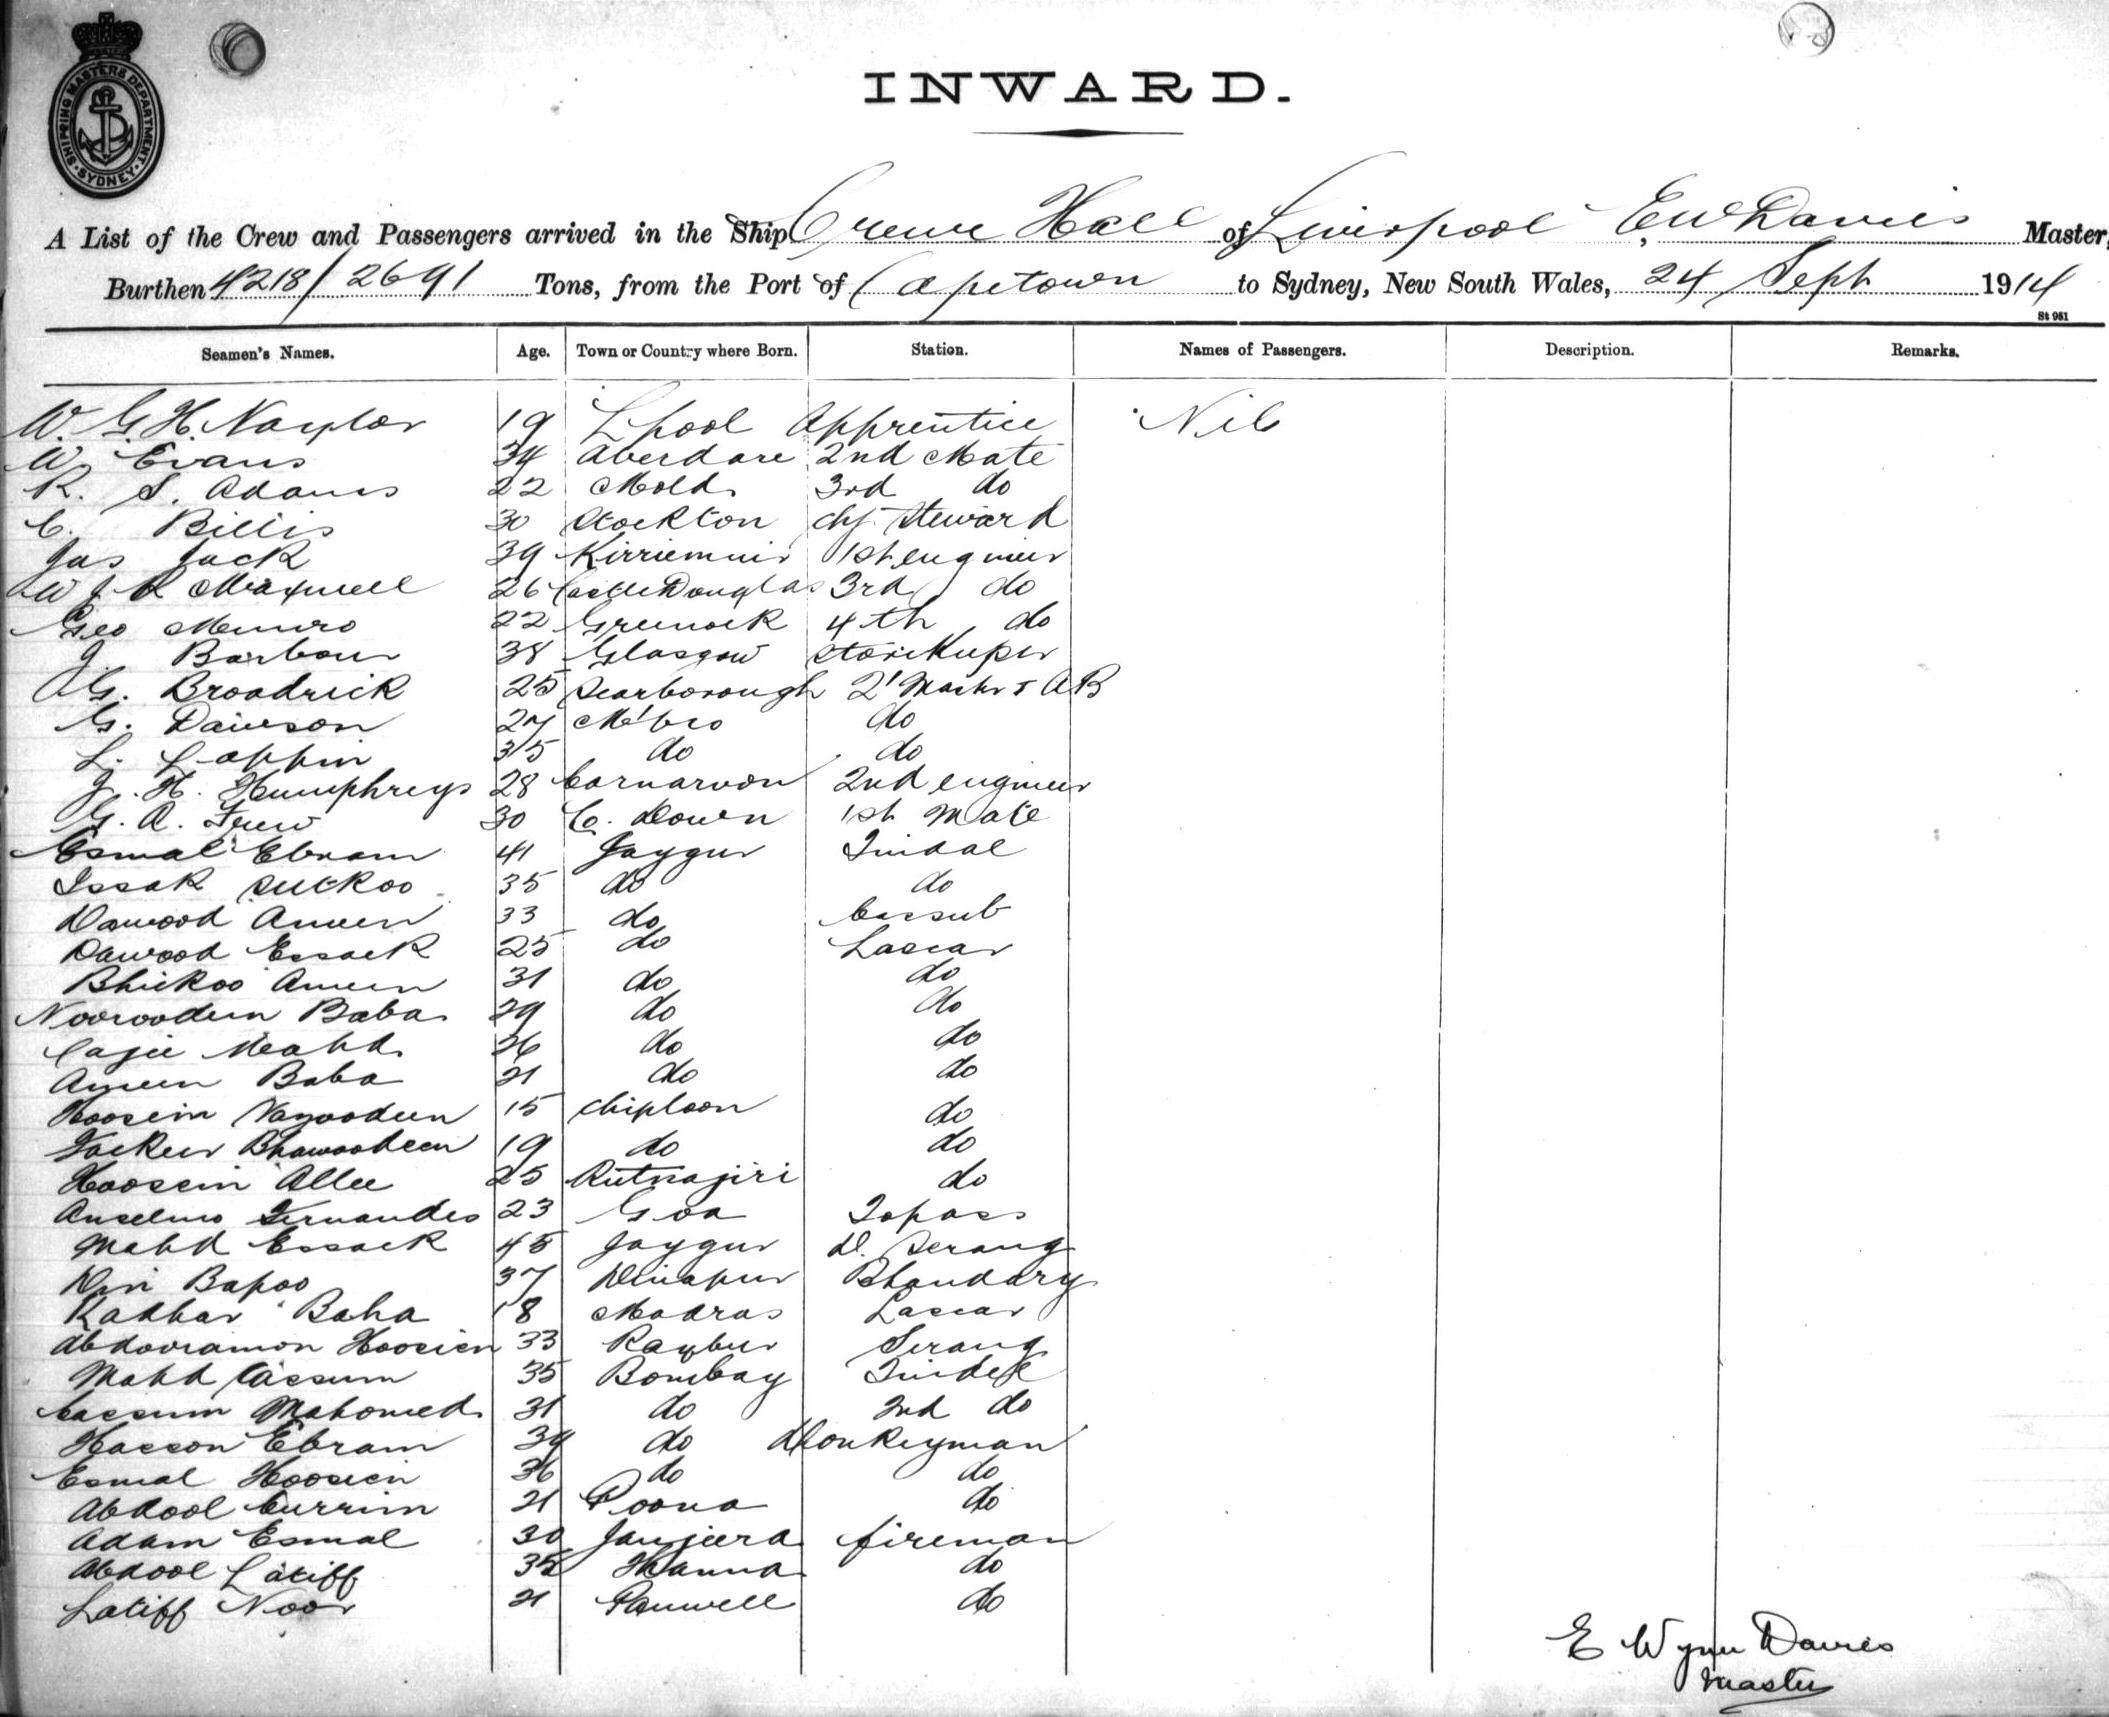 SHIPPING MASTERS DEPARTMENT · SYDNEY ·
INWARD.
A List of the Crew and Passengers arrived in the Ship Crewe Hall of Liverpool E W Davies Master,
Burthen 4218/2691 Tons, from the Port of Capetown to Sydney, New South Wales, 24 Sept 1914
St 961
Seamen's Names. Age. Town or Country where Born. Station. Names of Passengers. Description. Remarks.
W. G. H. Naylor 19 L'pool Apprentice Nil
W. Evans 34 Aberdare 2nd Mate
R. S. Adams 22 Mold 3rd do
C. Billis 30 Stockton chf Steward
Jas Jack 39 Kirriemuir 1st engineer
W J R Maxwell 26 Castle Douglas 3rd do
Geo Munro 22 Greenock 4th do
J. Barbour 38 Glasgow Storekeeper
G. Broadrick 25 Scarborough 2' Master & AB
G. Dawson 27 M'bro do
L. Lappin 35 do do
J. H. Humphreys 28 Carnarvon 2nd engineer
G. A. Frew 30 C. Down 1st Mate
Esmal Ebram 41 Jaygur Tindal
Issak 35 do do
Dawood Ameen 33 do Cassub
Dawood Essack 25 do Lascar
Bhickoo Ameen 31 do do
Nooroodeen Baba 29 do do
Cajee Mahd. 36 do do
Ameen Baba 21 do do
Hoosein 15 Chiploon do
Fackeer Bhawoodeen 19 do do
Hoosein Allee 25 Rutnagiri do
Anselmo Fernandes 23 Goa Topass
Mahd Essack 45 Jaygur D. Serang
Din Bapoo 37 Dinapur Bhandary
Kadhar Baba 18 Madras Lascar
Abdooramon Hoosien 33 Serang
Mahd Cassum 35 Bombay Tindel
Cassum Mahomed 31 do 2nd do
Hasson Ebram 39 do Donkeyman
Esmal Hoosien 36 do do
Abdool Currim 21 Poona do
Adam Esmal 30 Janjeera fireman
Abdool Latiff 35 Thanna do
Latiff Noor 21 Panwell do
E Wynn Davies
Master